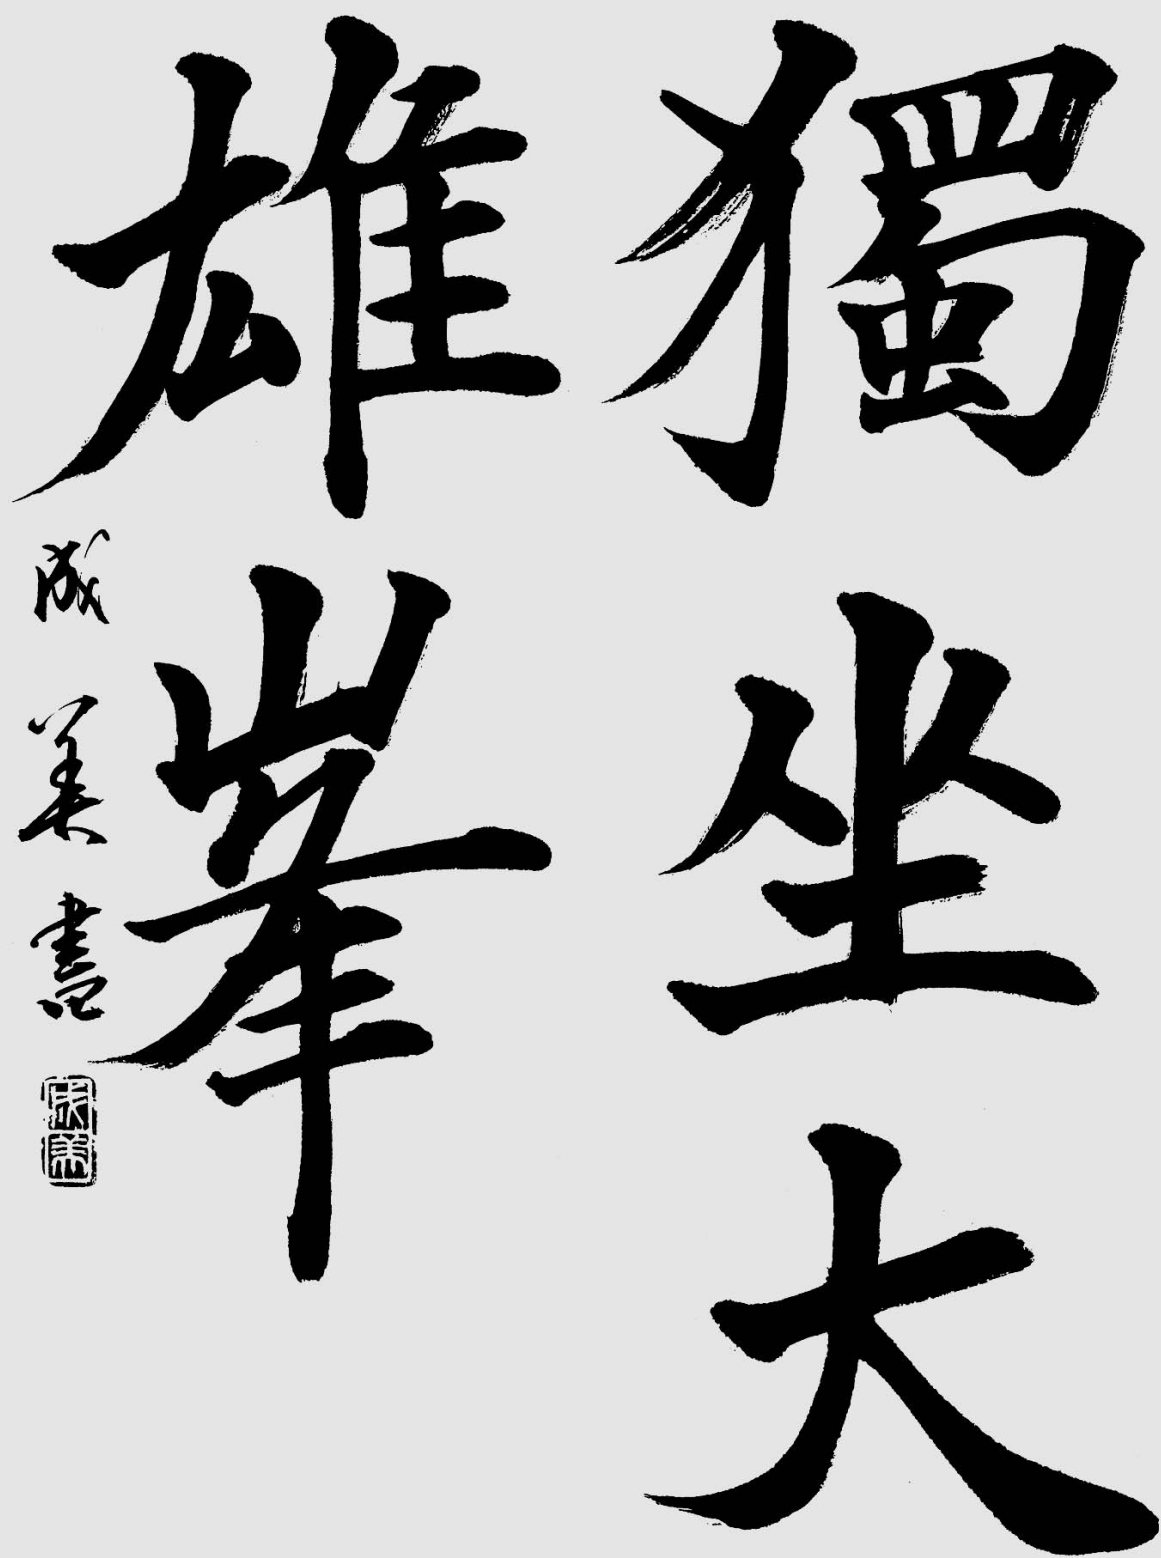 獨坐大
雄峯
成美書
成美